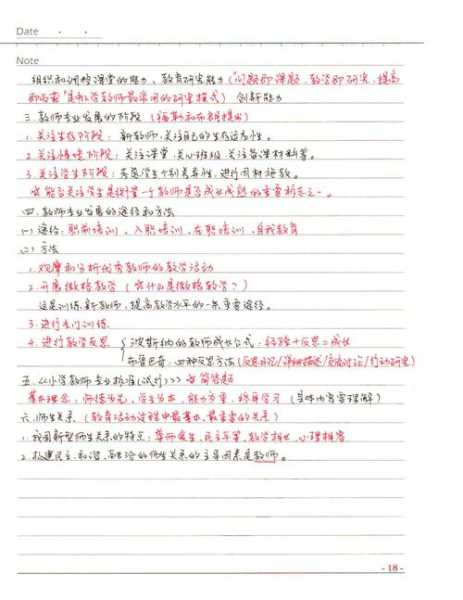 Date · ·
Note
组织和调控课堂的能力、教育研究能力("问题即课题、教学即研究、提高
即成果"是中小学教师最常用的研究模式) 创新能力
三、教师专业发展的阶段(福勒和布朗提出)
1. 关注生存阶段:新教师,关注自己的生存适应性。
2. 关注情境阶段:关注课堂、关心班级、关注备课材料等。
3. 关注学生阶段:考虑学生个别差异性,进行因材施教。
☆能否关注学生是衡量一个教师是否成长成熟的重要标志之一。
四、教师专业发展的途径和方法
(一)途径:职前培训、入职培训、在职培训、自我教育
(二)方法
1. 观摩和分析优秀教师的教学活动
2. 开展微格教学(☆什么是微格教学?)
这是训练新教师,提高教学水平的一条重要途径。
3. 进行专门训练
4. 进行教学反思 { 波斯纳的教师成长公式:经验+反思=成长
布鲁巴奇:四种反思方法(反思日记/详细描述/交流讨论/行动研究)
五、《小学教师专业标准(试行)》 ☆简答题
基本理念:师德为先、学生为本、能力为重、终身学习(具体内容需理解)
六、师生关系(教育活动过程中最基本、最重要的关系)
1. 我国新型师生关系的特点:尊师爱生、民主平等、教学相长、心理相容
2. 构建民主、和谐、的师生关系的主导因素是教师。
- 18 -